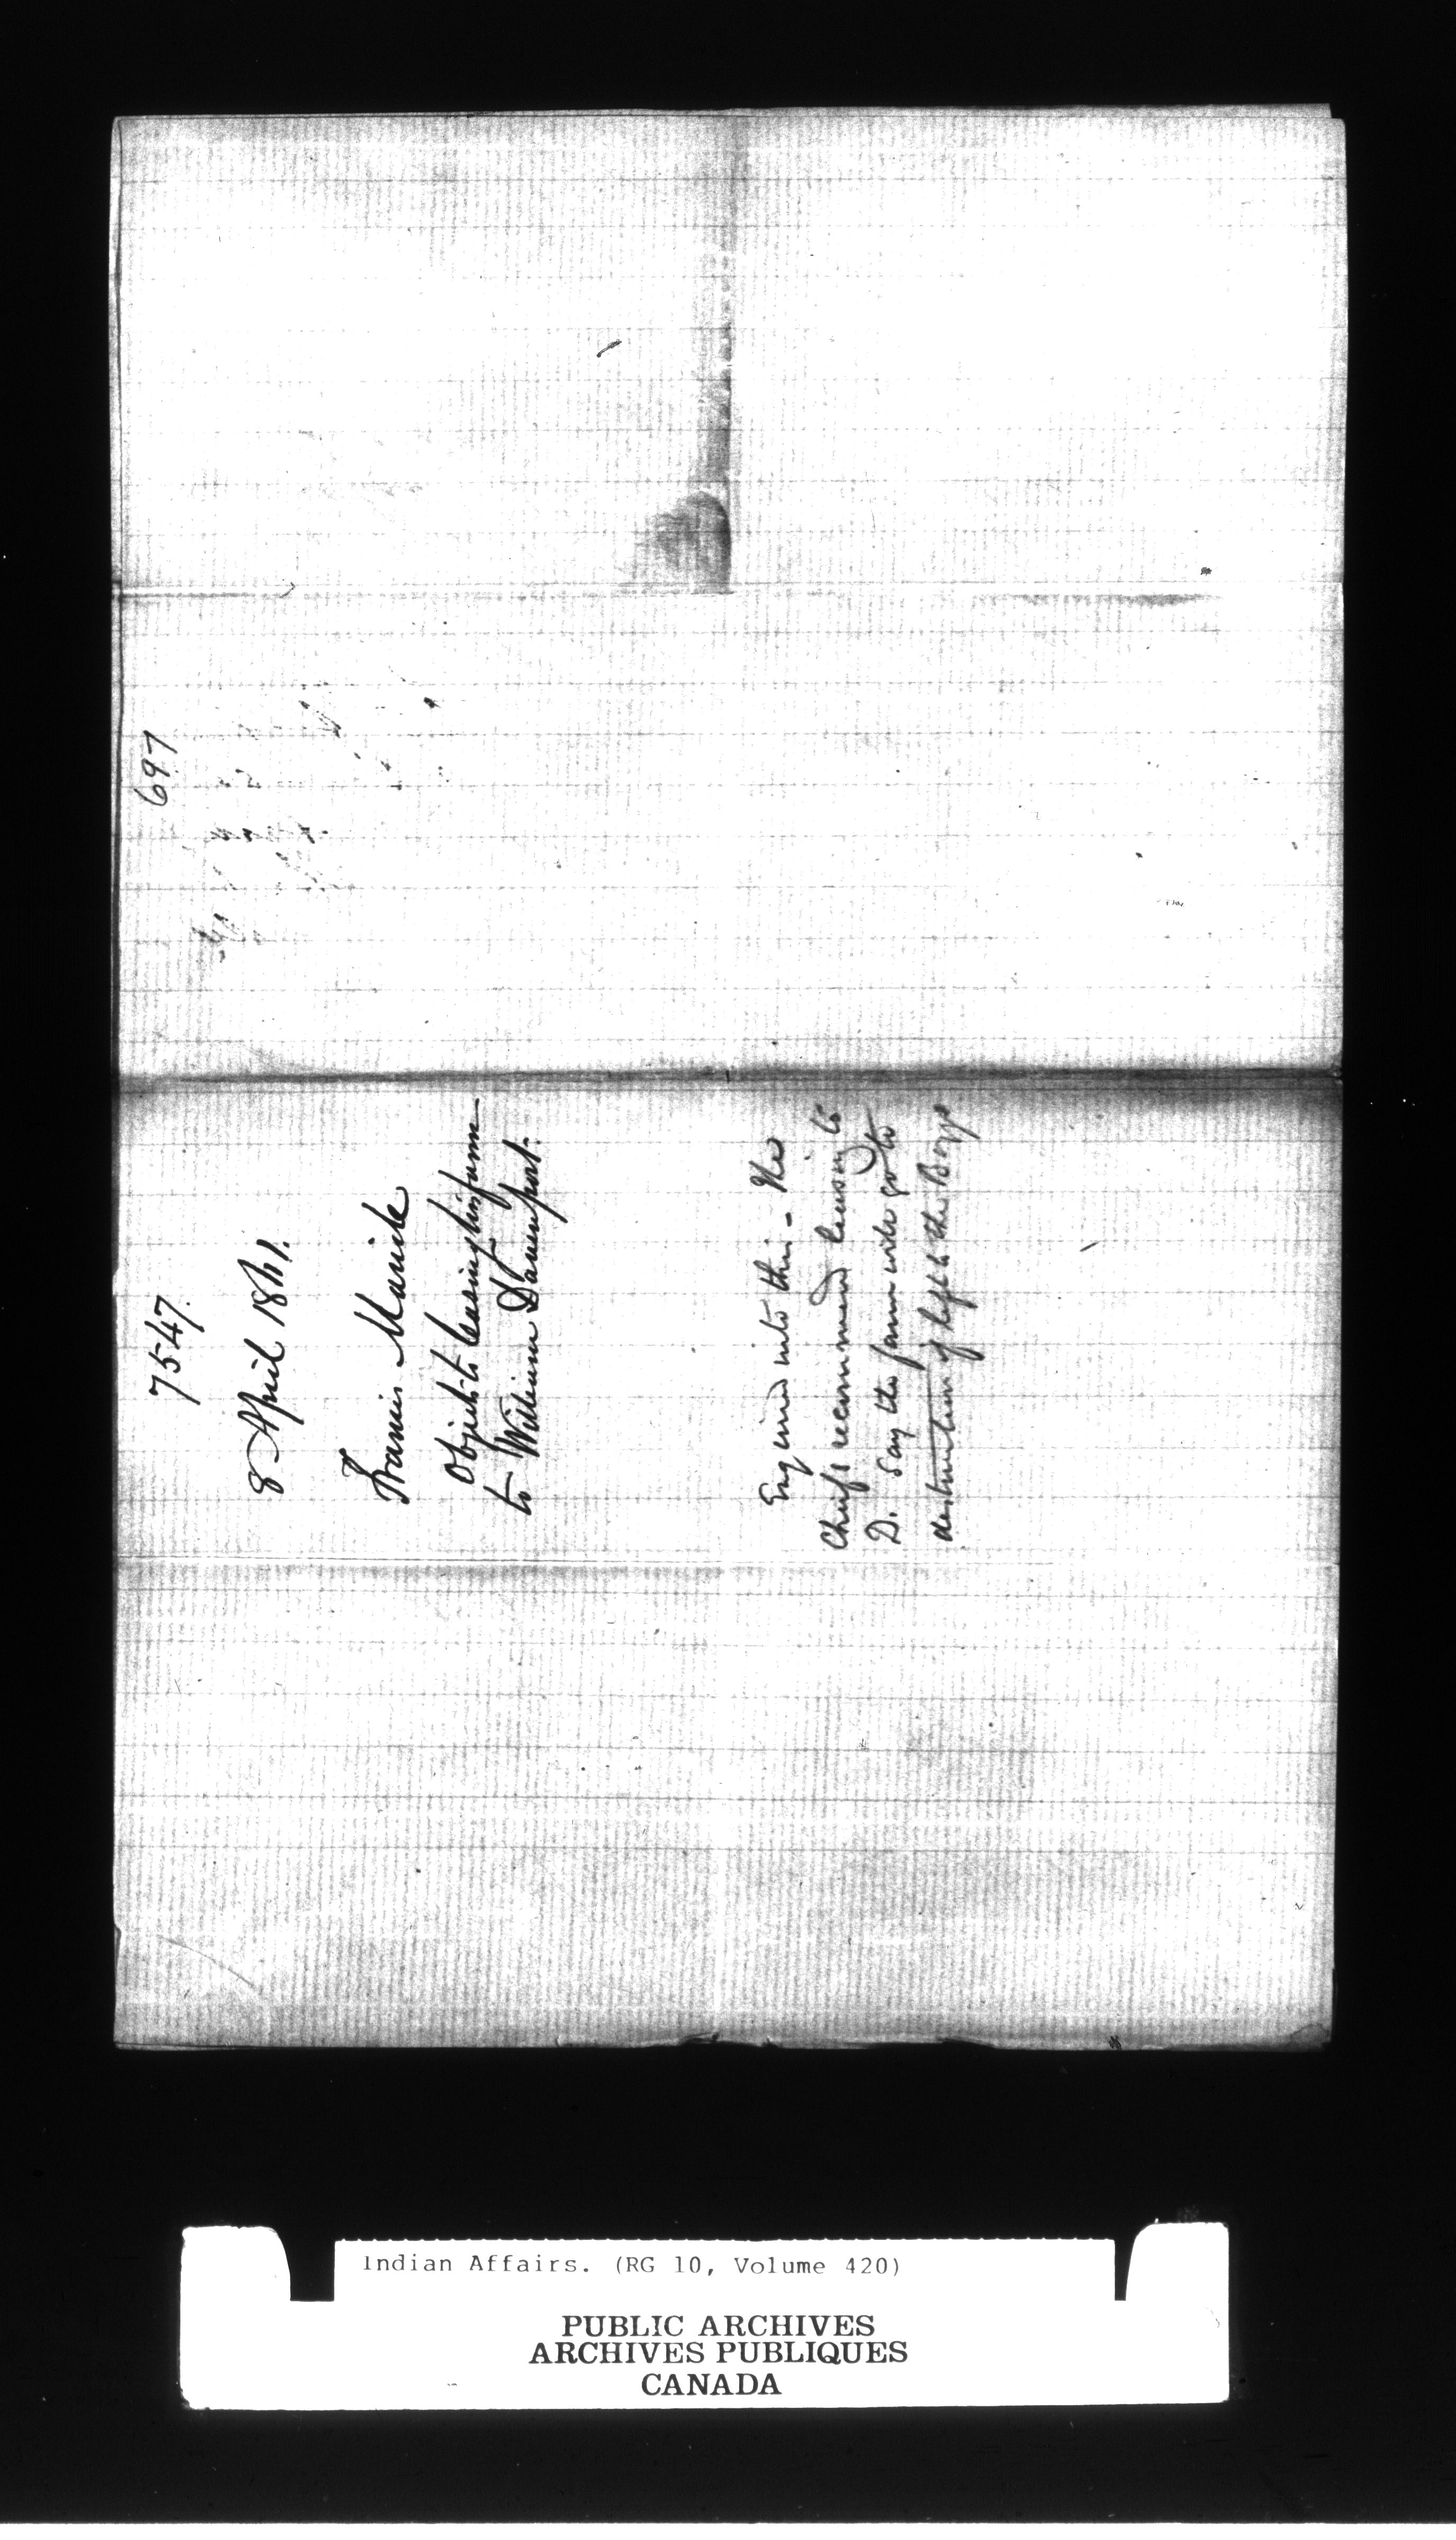 697
7547.
8 April 1861.
Francis Maricle
Objects to leasing his farm
to William Davenport.
Enquired into this - The
Chiefs recommend leasing to
D. Say the farm will go to
destruction if left to the Boys
Indian Affairs. (RG 10, Volume 420)
PUBLIC ARCHIVES
ARCHIVES PUBLIQUES
CANADA